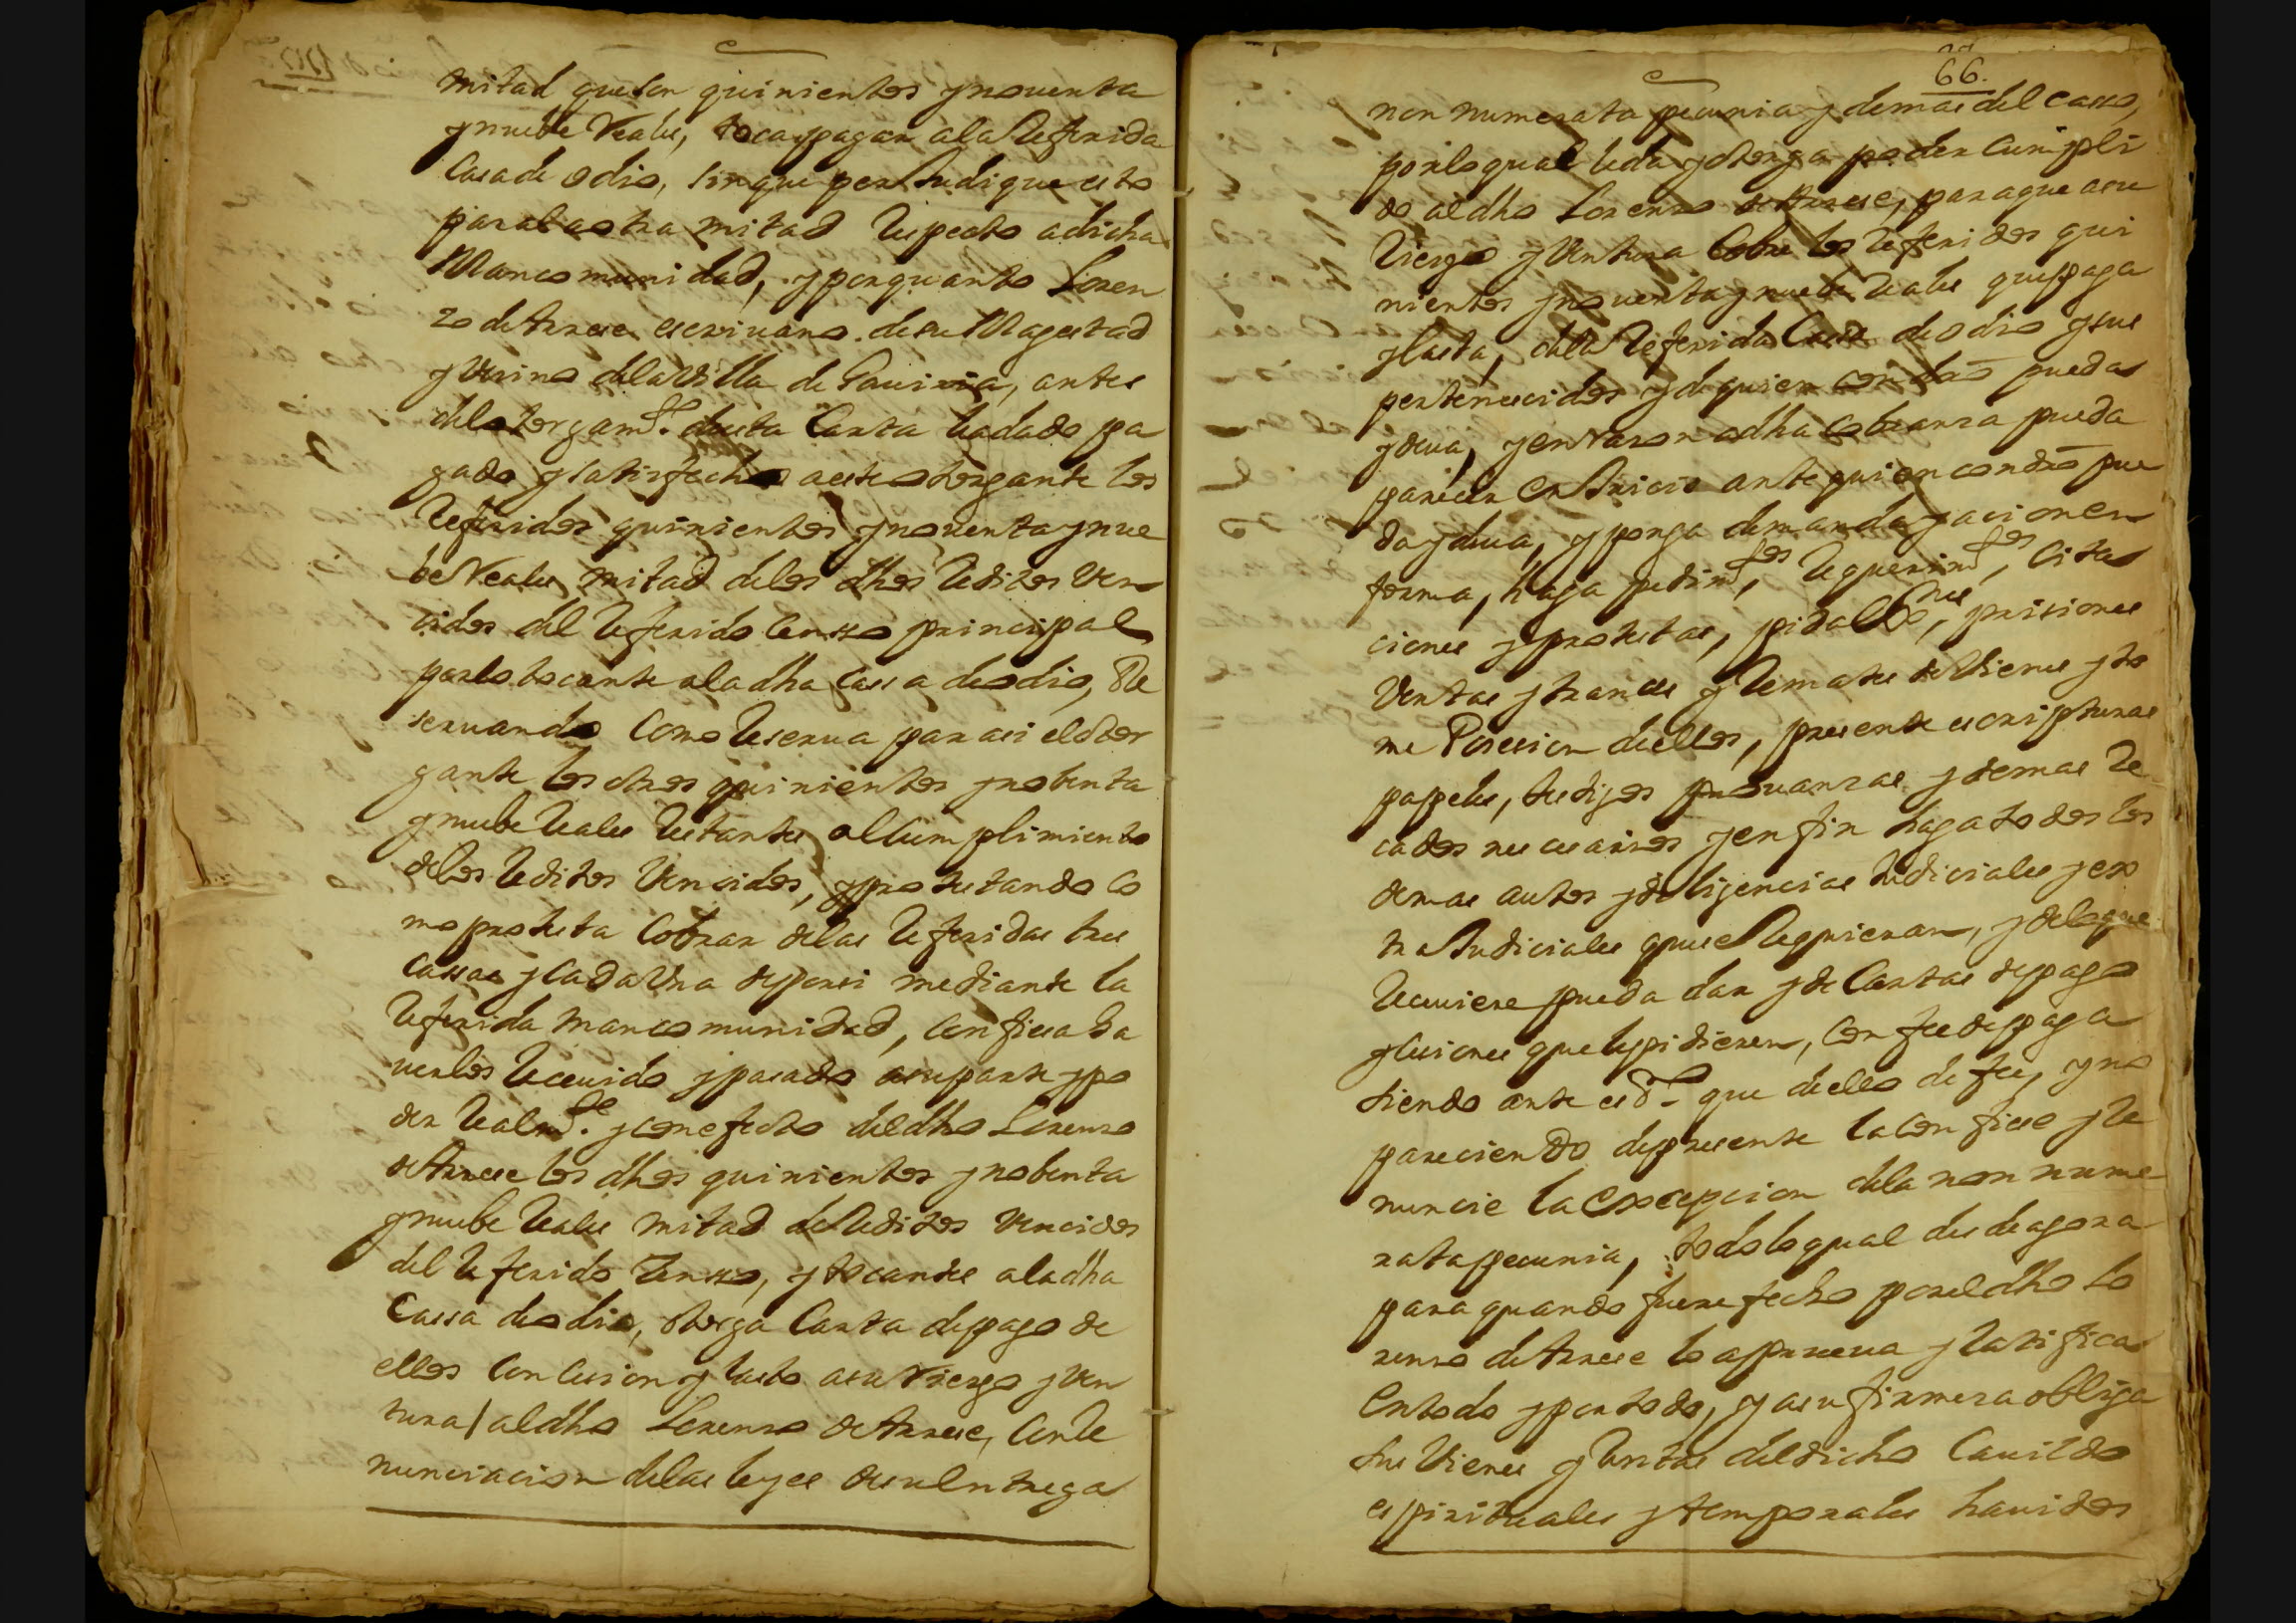 mitad queson quinientos ynouenta
ynuebe Reales, toca pagar ala Referida
Casa de odio, sin que perJudique esto
para la otra mitad Respecto a dicha
Mancomunidad, y por quanto Loren
zo de Arrese escriuano de su Magestad
y vecino dela villa de Gauiria, antes
del otorgam.to desta Carta ha dado pa
gado y satisfecho a este otorgante los
Referidos quinientos ynouenta ynue
be Reales mitad delos dhos Reditos Ven
cidos del Referido Censso principal
por lo tocante ala dha Cassa de odio, Re
seruando Como Reserua para si el otor
gante los otros quinientos y nobenta
ynuebe Reales Restantes al Cumplimiento
delos Reditos Vencidos, y protestando Co
mo protesta Cobrar delas Referidas tres
Cassas y Cada Vna de por si mediante la
Referida mancomunidad, Confiesa ha
uerlos Receuido y pasado a su parte y po
der Realm.te y con efecto del dho Lorenzo
de Arrese los dhos quinientos y nobenta
ynuebe Reales mitad de Reditos Vencidos
del Referido Censso, y tocantes ala dha
Cassa de odio, otorga Carta de pago de
ellos Con Cesion y lasto a su Riesgo y Ven
tura / al dho Lorenzo de Arrese, Con Re
nunciacion delas leyes de su entrega
66.
non numerata pecunia y demas del caso,
por lo qual le da y otorga poder Cumpli
do al dho Lorenzo de Arrese, para que a su
Riesgo y Ventura Cobre los Referidos qui
nientos ynouenta y nuebe Reales que paga
y lasta, dela Referida Cassa de odio y sus
pertenecidos y de quien con dro pueda
y deua, y en razon a dha cobranza pueda
parecer en Juicio ante quien con dro pue
da y deua, y ponga demanda y acion en
forma, haga pedim.tos, Requerim.tos, Cita
ciones y protestas, pida exo.nes, prisiones
Ventas y trances y Remates de Vienes y to
me Posesion de ellos, presente escripturas
papeles, testigos prouanzas y demas Re
cados necesarios y en fin haga todos los
demas autos y diligencias Judiciales y ex
traJudiciales que se Requieran, y delo que
Receuiere pueda dar y de Cartas de pago
y Cesiones que le pidieren, Con fee de paga
siendo ante es.no que de ello de fee, y no
pareciendo de presente la Confiese y Re
nuncie la excepcion dela non nume
rata pecunia, todo lo qual desde agora
para quando fuere fecho por el dho Lo
renzo de Arrese lo aprueua y Ratifica
en todo y por todo, y a su firmeza obliga
sus Vienes y Rentas del dicho Cauildo
espirituales y temporales hauidos